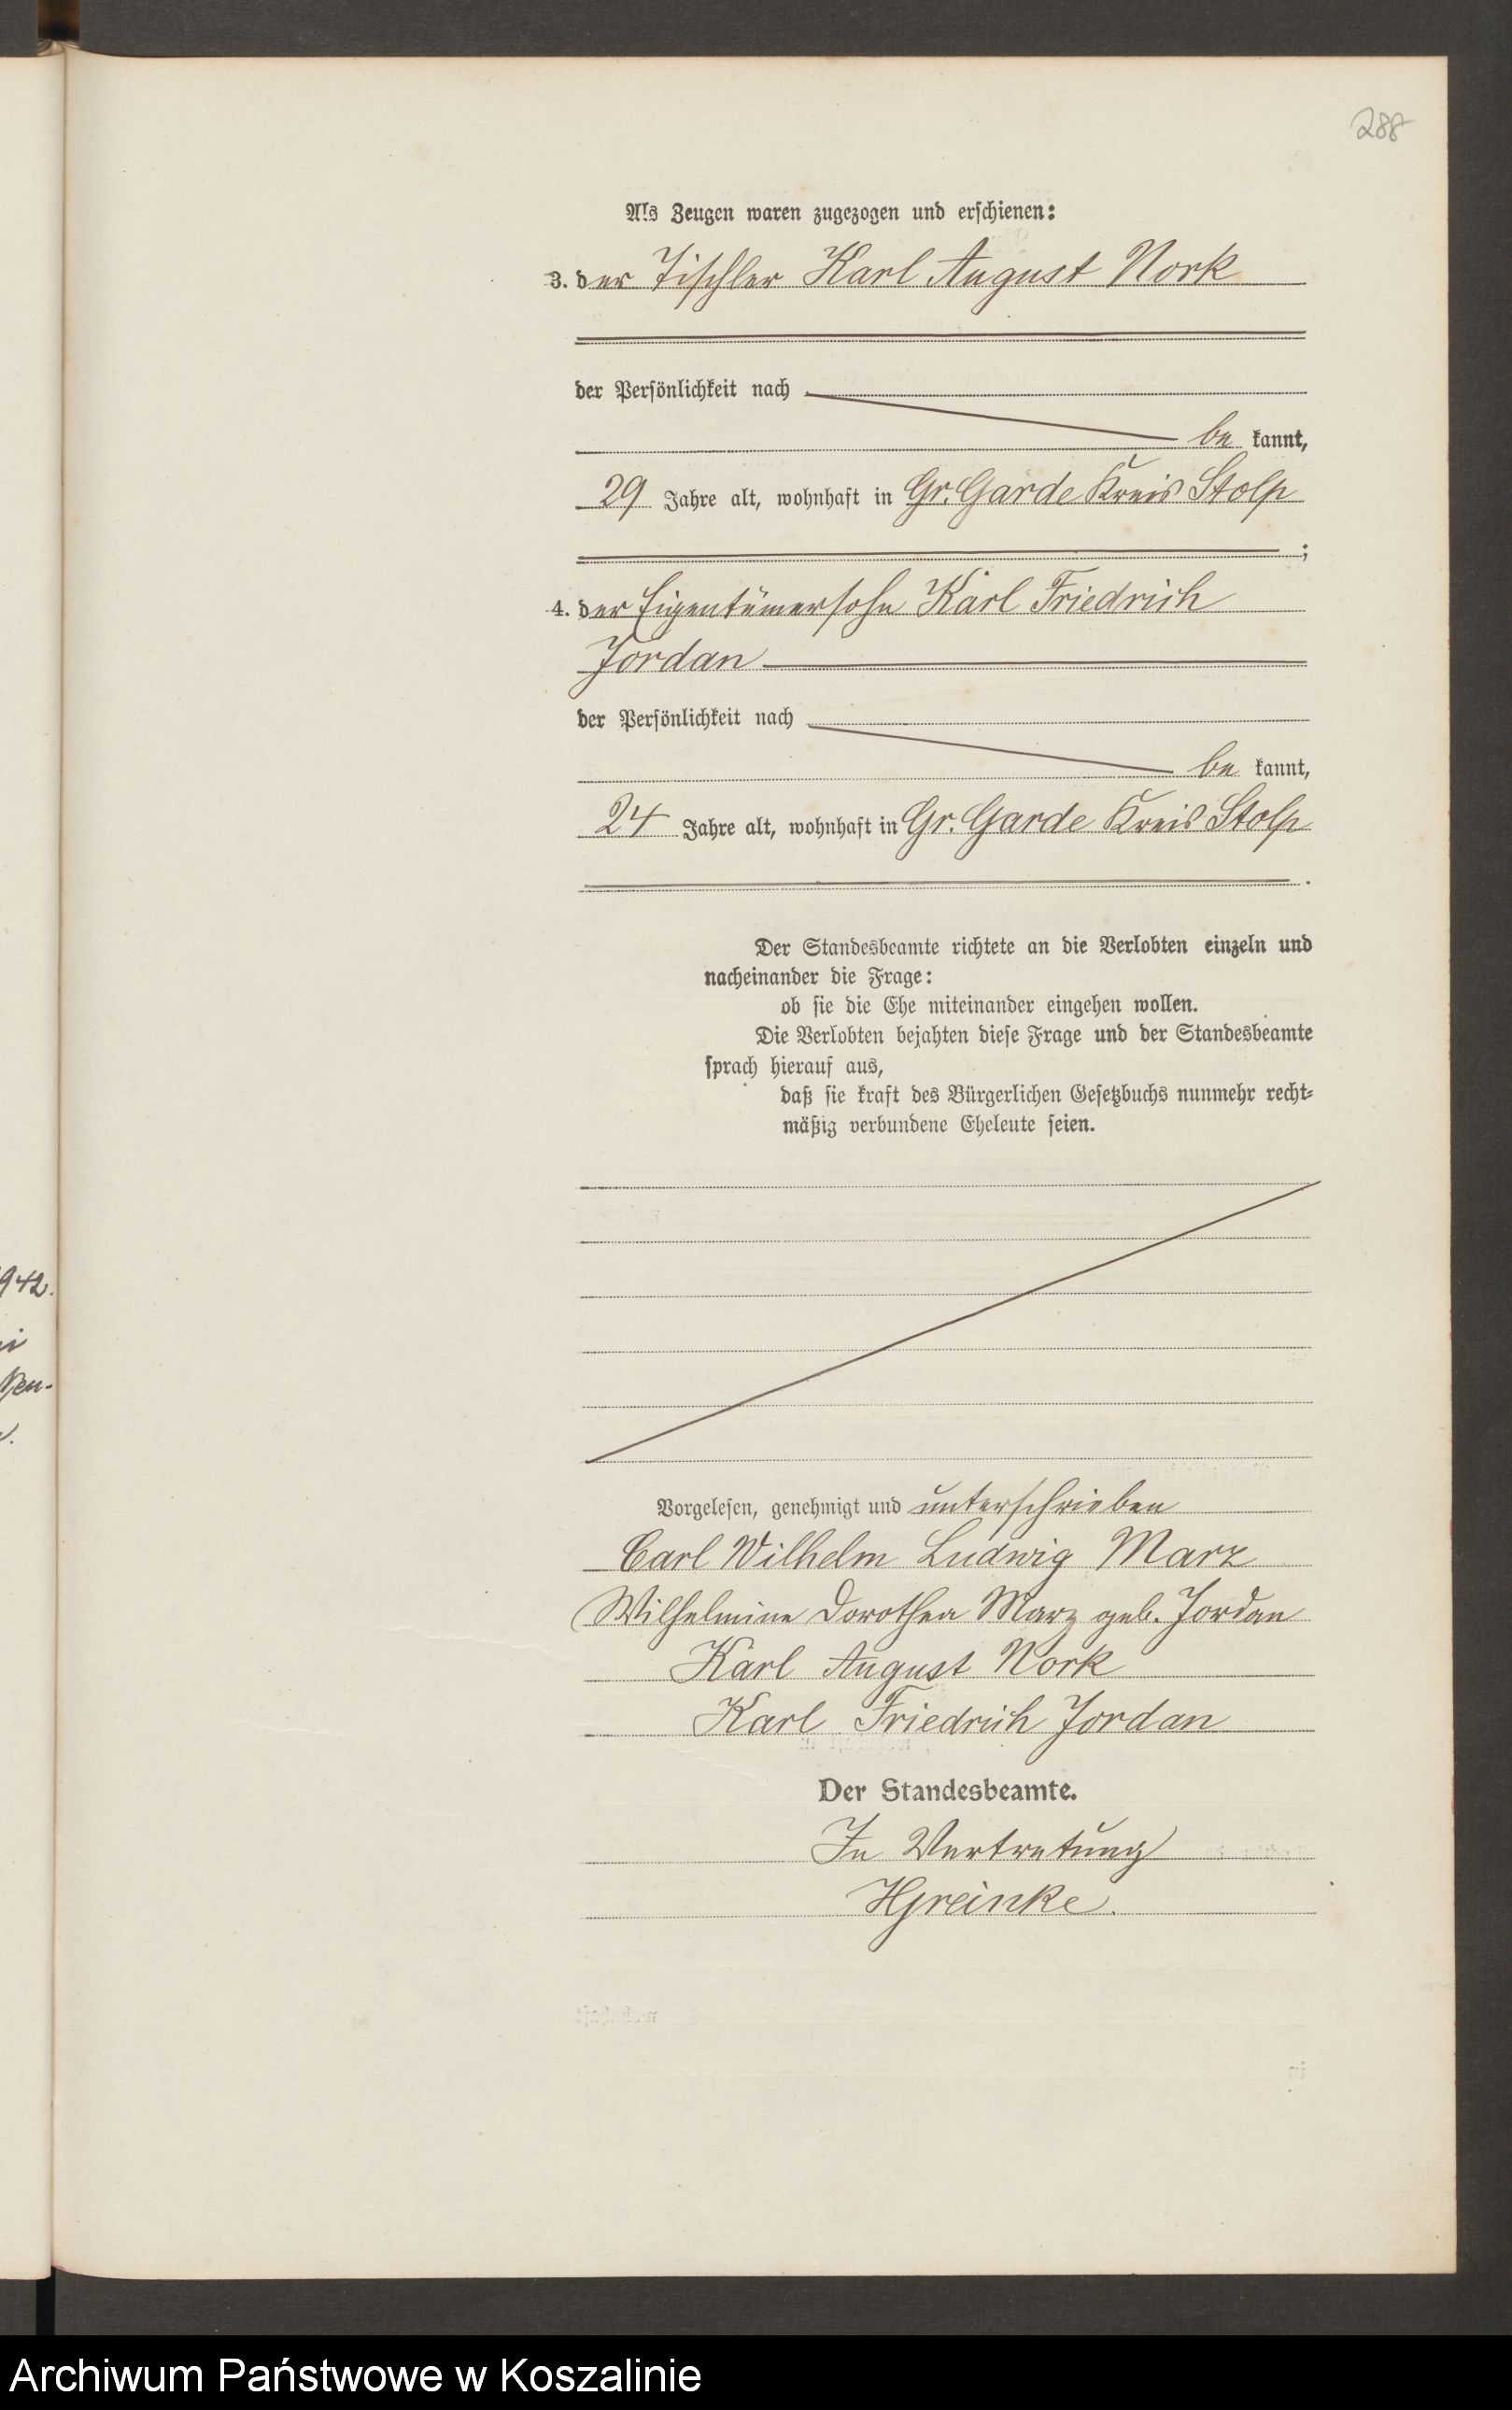 288
Als Zeugen waren zugezogen und erschienen:
3. der Tischler Karl August Nork
der Persönlichkeit nach
be kannt,
29 Jahre alt, wohnhaft in Gr. Garde Kreis Stolp
;
4. der Eigentümersohn Karl Friedrich
Jordan
der Persönlichkeit nach
be kannt,
24 Jahre alt, wohnhaft in Gr. Garde Kreis Stolp
.
Der Standesbeamte richtete an die Verlobten einzeln und
nacheinander die Frage:
ob sie die Ehe miteinander eingehen wollen.
Die Verlobten bejahten diese Frage und der Standesbeamte
sprach hierauf aus,
daß sie kraft des Bürgerlichen Gesetzbuchs nunmehr recht-
mäßig verbundene Eheleute seien.
942.
Vorgelesen, genehmigt und unterschrieben
Carl Wilhelm Ludwig Marz
Wilhelmine Dorothea Marz geb. Jordan
Karl August Nork
Karl Friedrich Jordan
Der Standesbeamte.
In Vertretung
Archiwum Państwowe w Koszalinie